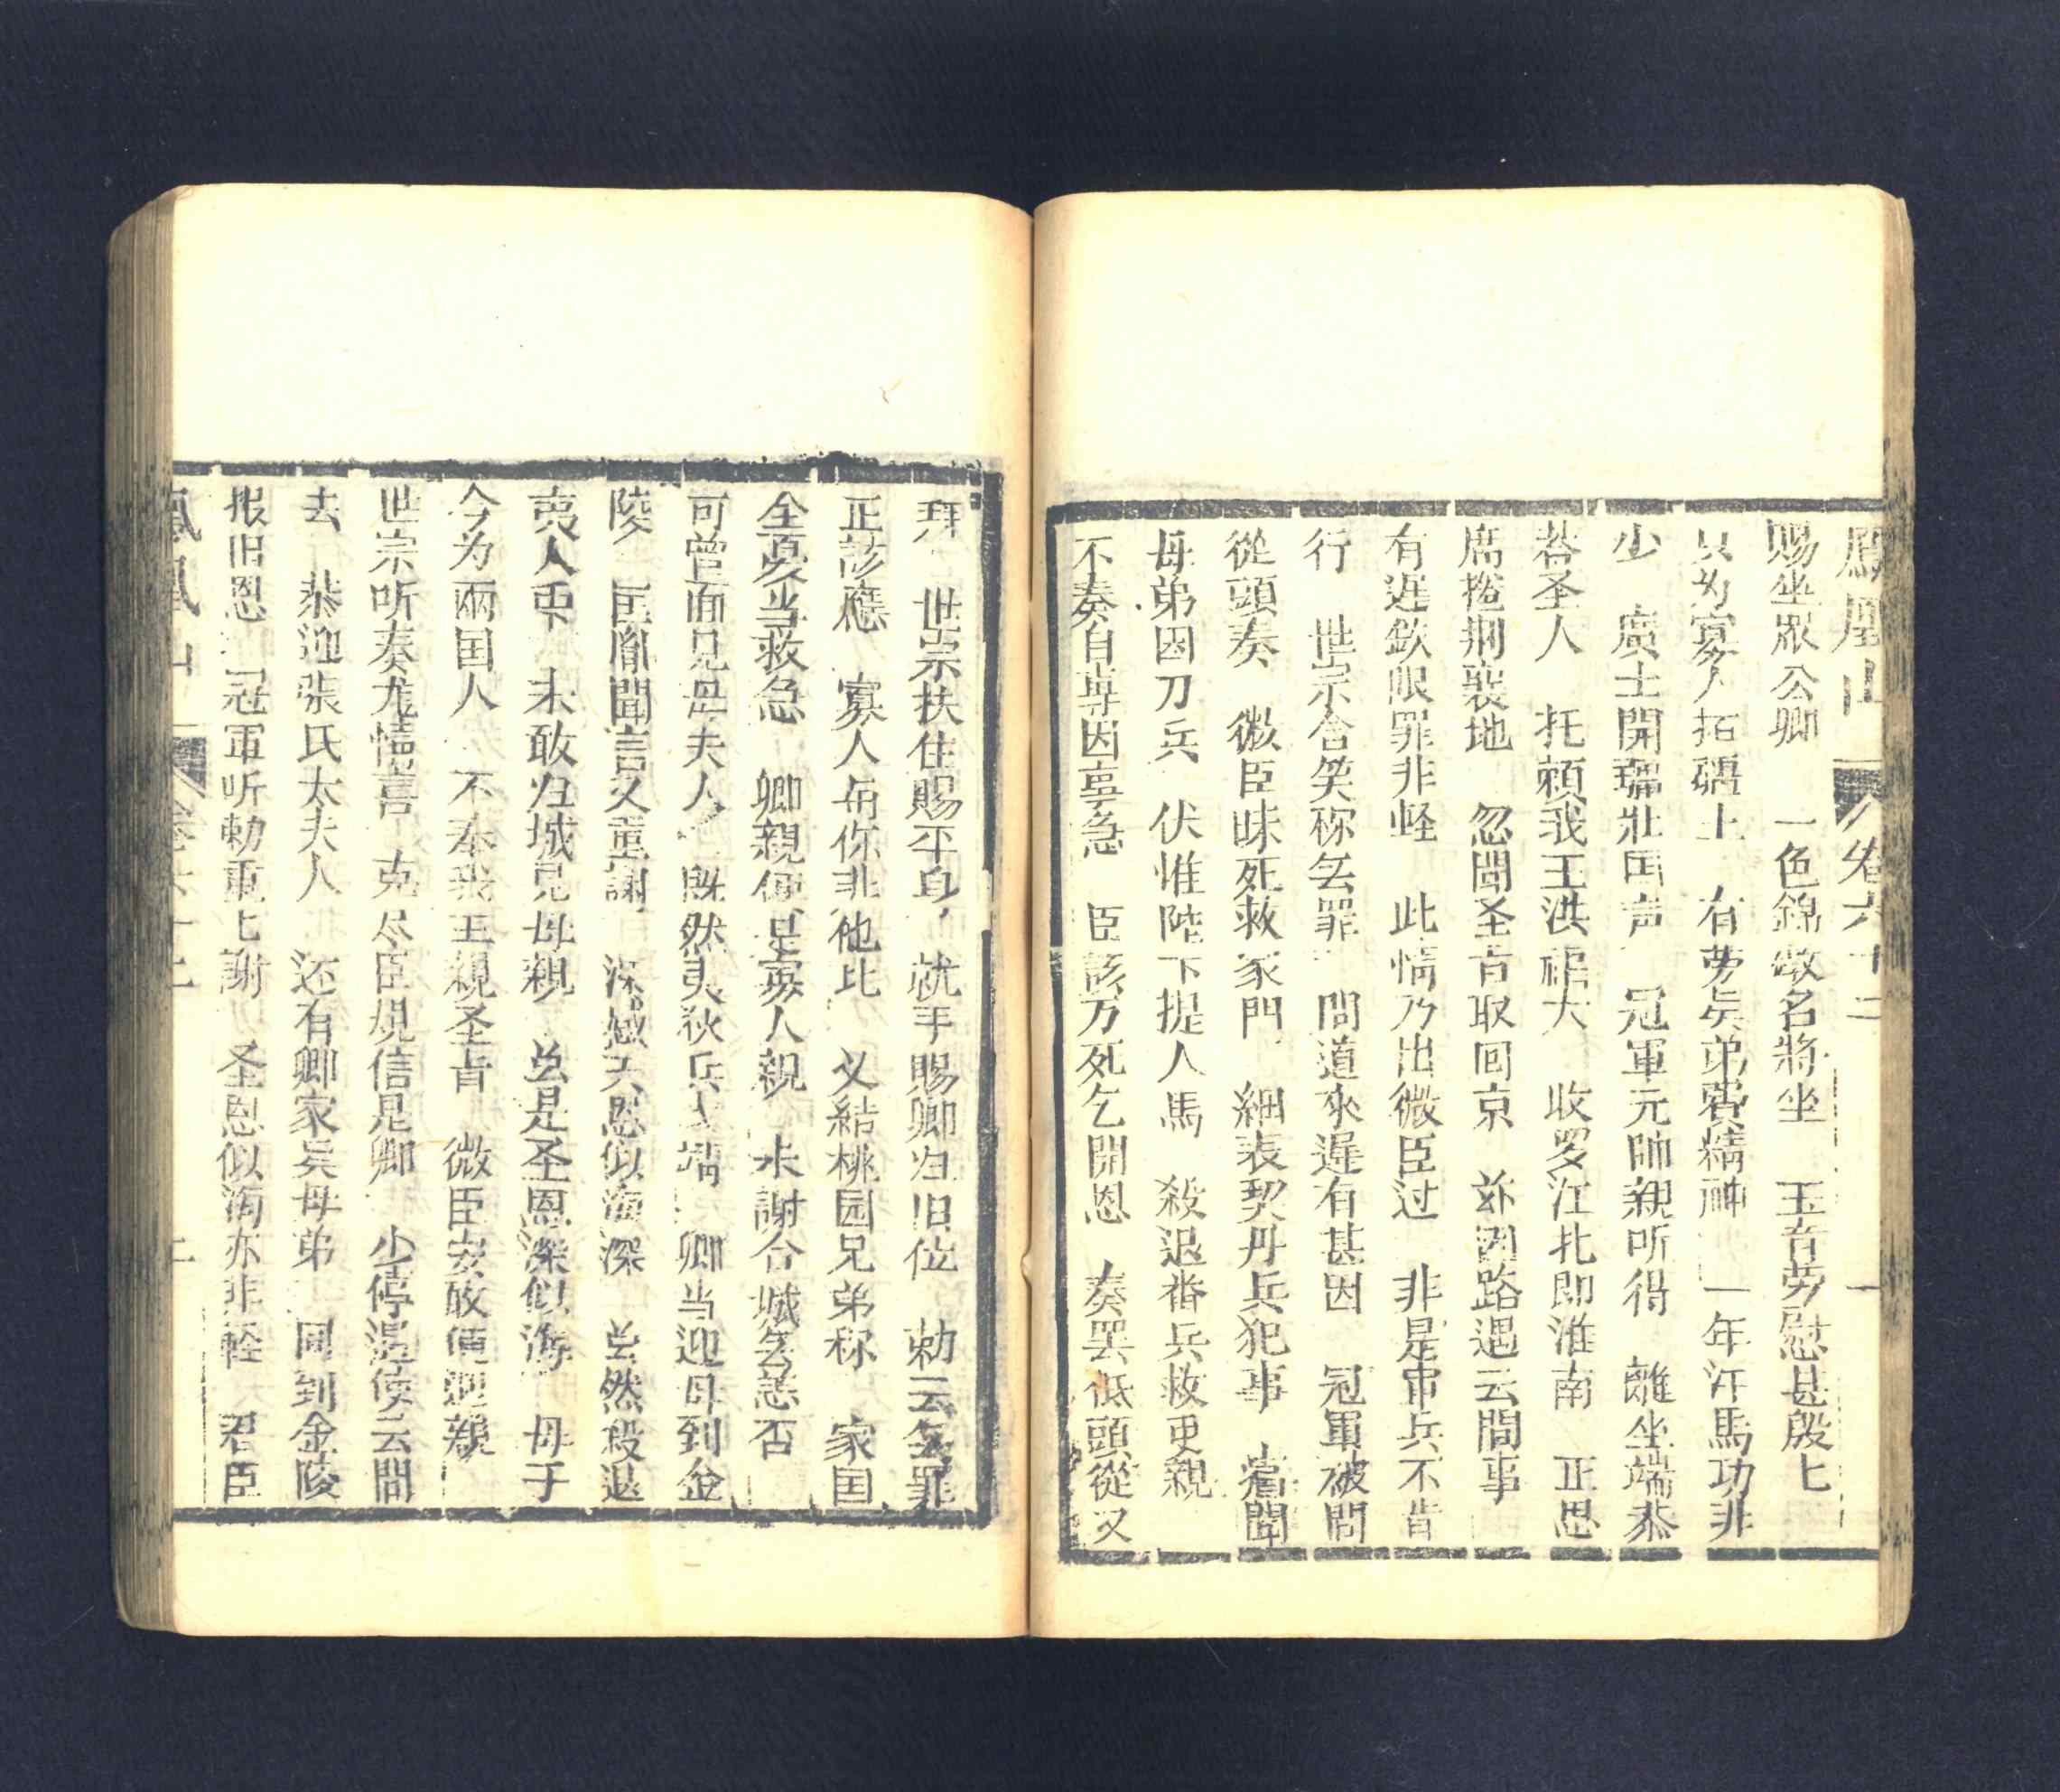 鳳凰山 卷六十二 一
賜坐眾公卿 一色錦墩名將坐 玉音劳慰甚殷匕
只为寡人拓疆土 有劳矣弟費精神 一年汗馬功非
少 廣土開疆壯囯声 冠軍元帥親听得 離坐端恭
答圣人 托賴我王洪福大 收罗江北即淮南 正思
席捲荆襄地 忽聞圣旨取回京 亦因路遇云間事
有遅欽限罪非輕 此情乃出微臣过 非是軍兵不肯
行 世宗含笑称無罪 問道來遅有甚因 冠軍破問
從頭奏 微臣昧死救家門 細表契丹兵犯事 當聞
母弟因刀兵 伏惟陛下提人馬 殺退番兵救更親
不奏自專因事急 臣該万死乞開恩 奏罢低頭從又
拜 世宗扶住賜平身 就手賜卿归旧位 勅云無罪
正該應 寡人與你非他比 义結桃园兄弟称 家国
全莫当救急 卿親便是寡人親 未謝合城無恙否
可曾面見母夫人 既然夷狄兵 卿当迎母到金
陵 匡胤聞言又重謝 深感天恩似海深 雖然殺退
夷人軍 未敢归城見母親 总是圣恩深似海 母子
今为兩囯人 不奉我王親圣旨 微臣安敢便迎親
世宗听奏龙情喜 克尽臣規信是卿 少停遅使云間
去 恭迎張氏太夫人 还有卿家矣母弟 同到金陵
报旧恩 冠軍听勅重匕謝 圣恩似海亦非輕 君臣
鳳凰山 卷六十二 二